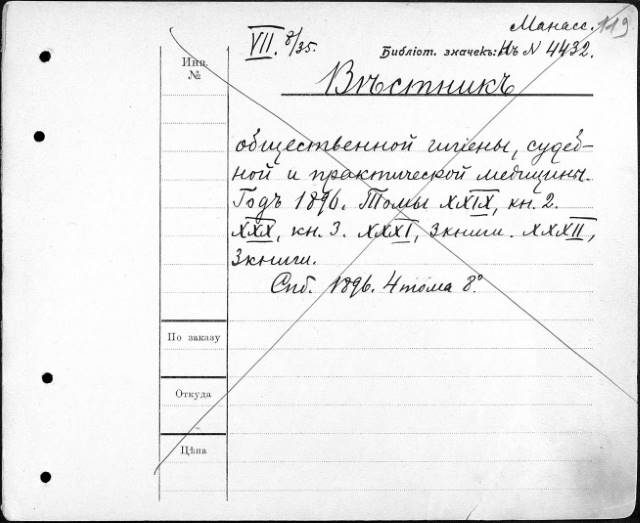 Манасс. 119
VII. 8/35.
Библіот. значекъ: Нъ N 4432.
Инв.
№
Вѣстникъ
общественной гигіены, судеб-
ной и практической медицины.
Годъ 1896. Томы XXIX, кн. 2.
XXX, кн. 3. XXXI, 3 книги. XXXII,
3 книги.
Спб. 1896. 4 тома 8º
По заказу
Откуда
Цѣна